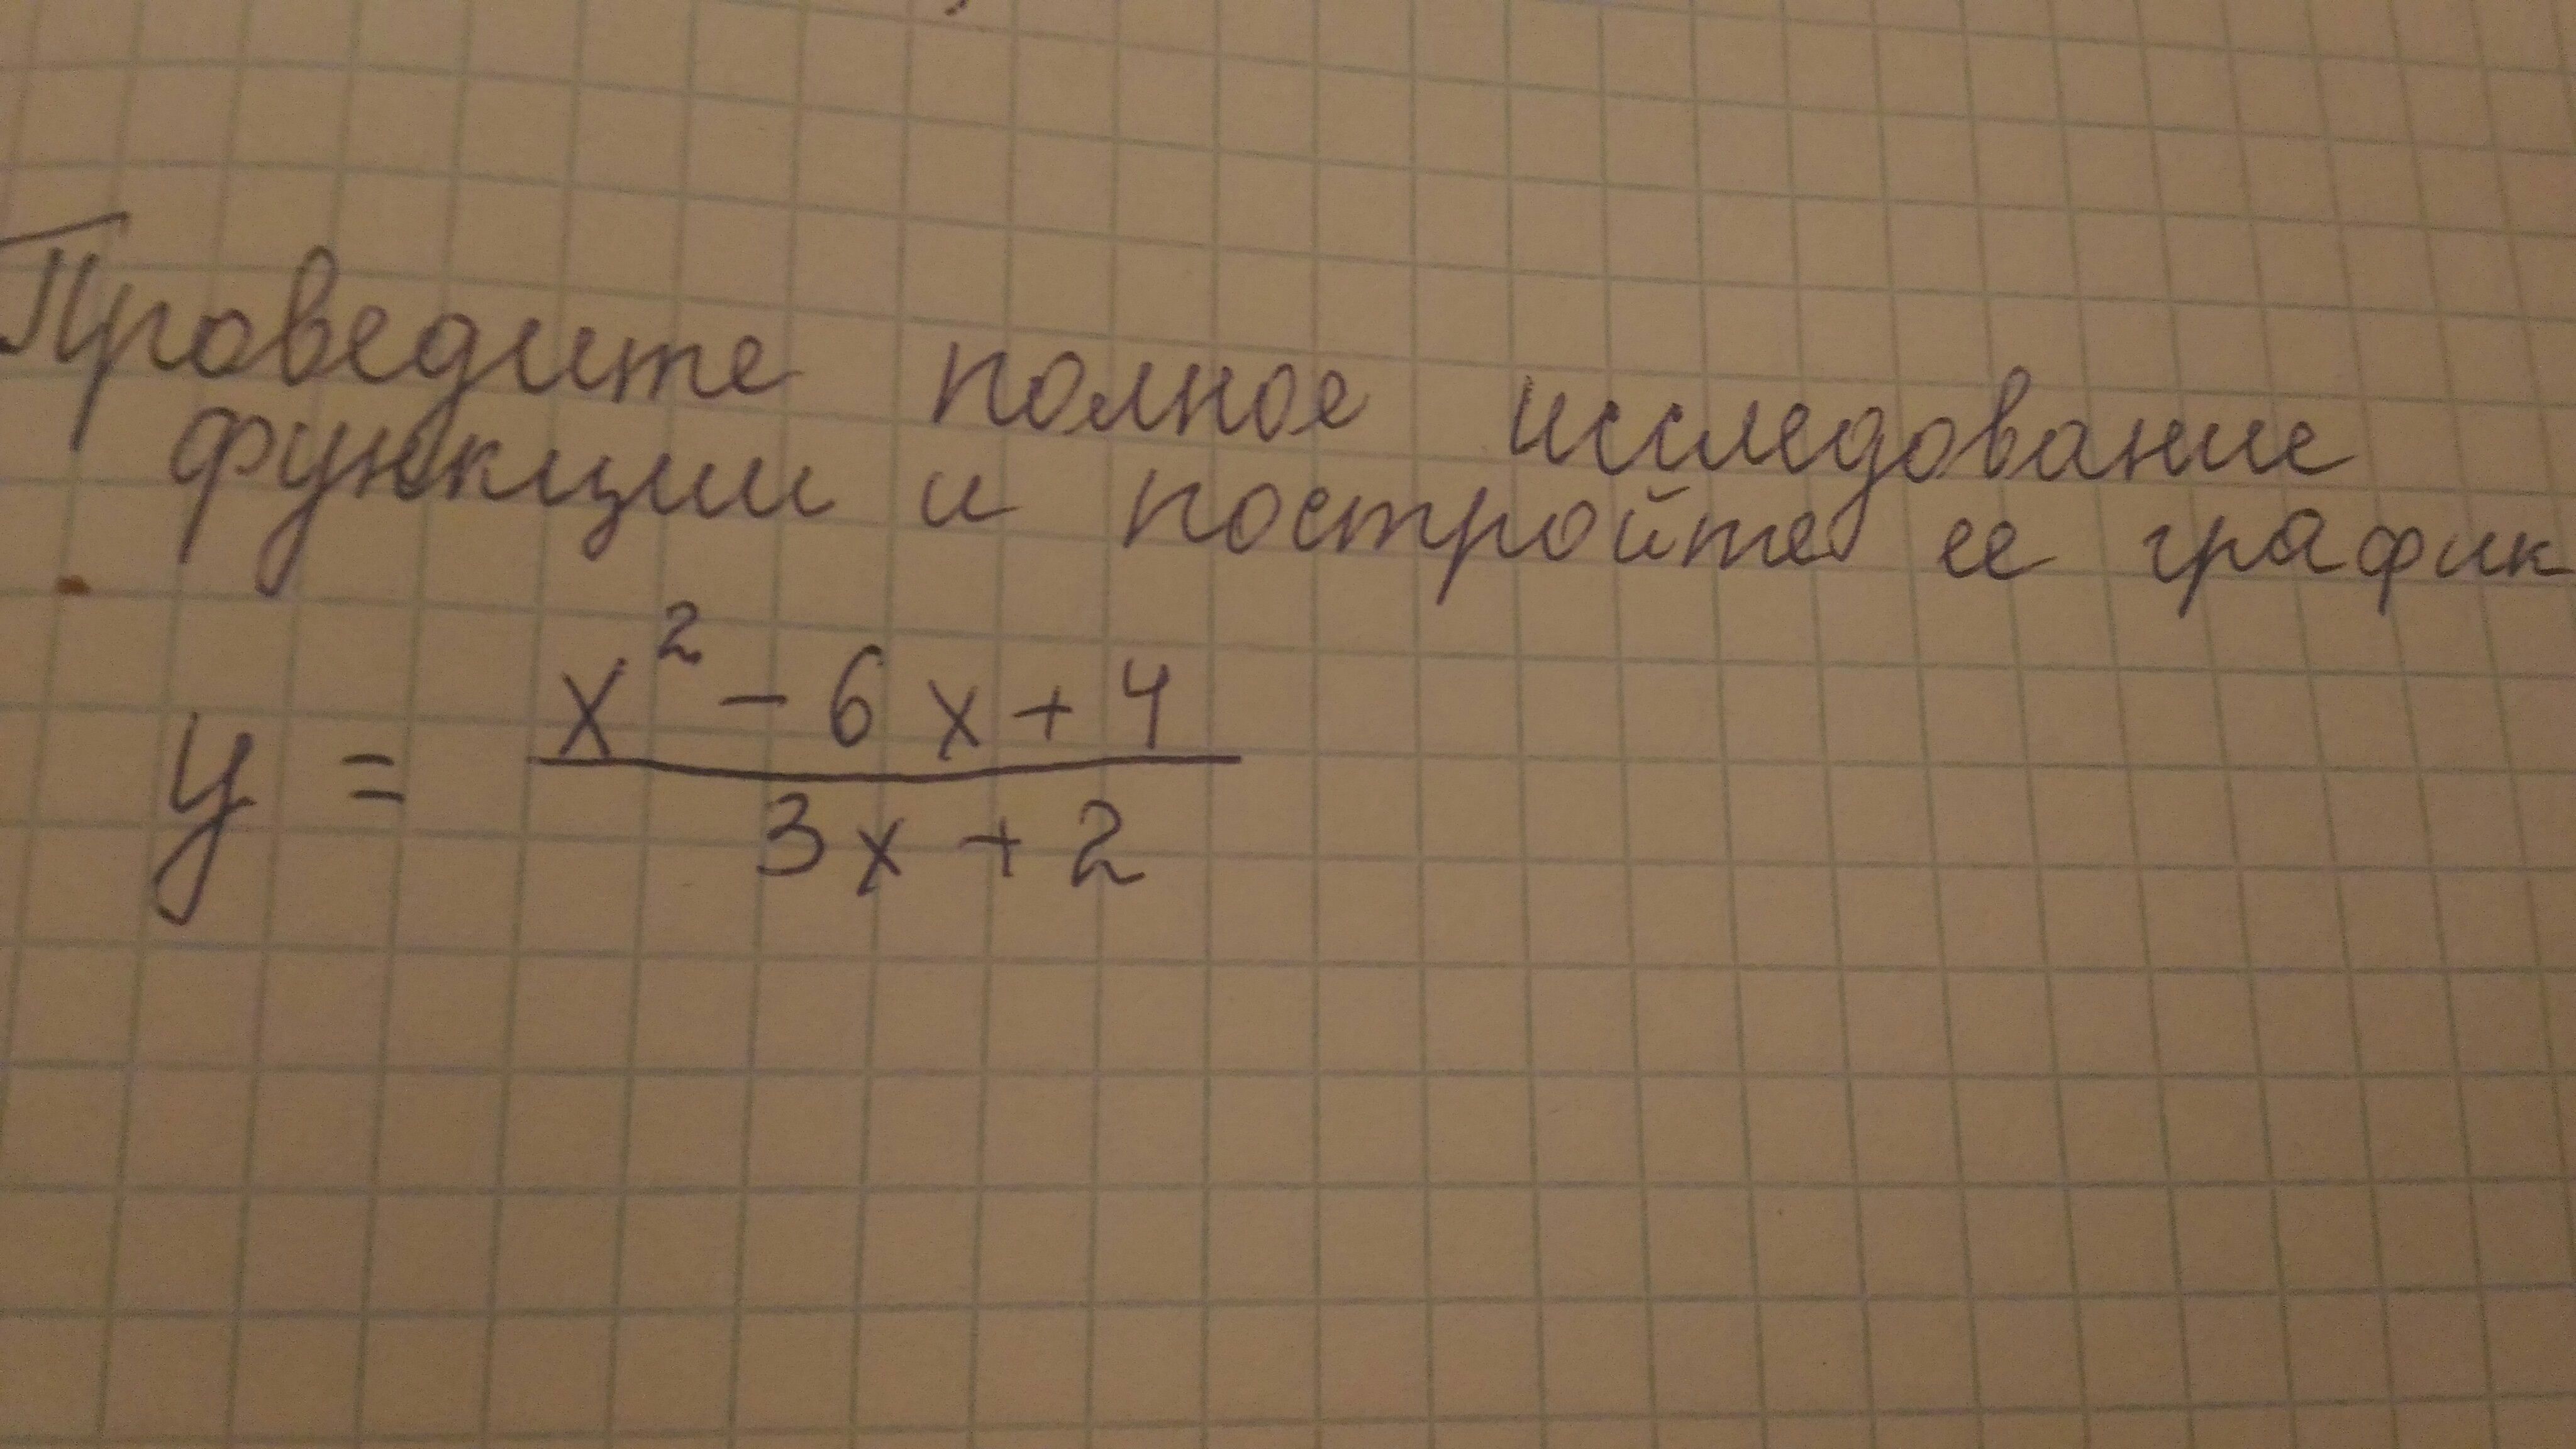 Проведите полное исследование
функции и постройте ее график
y = \frac{x^2 - 6x + 4}{3x + 2}